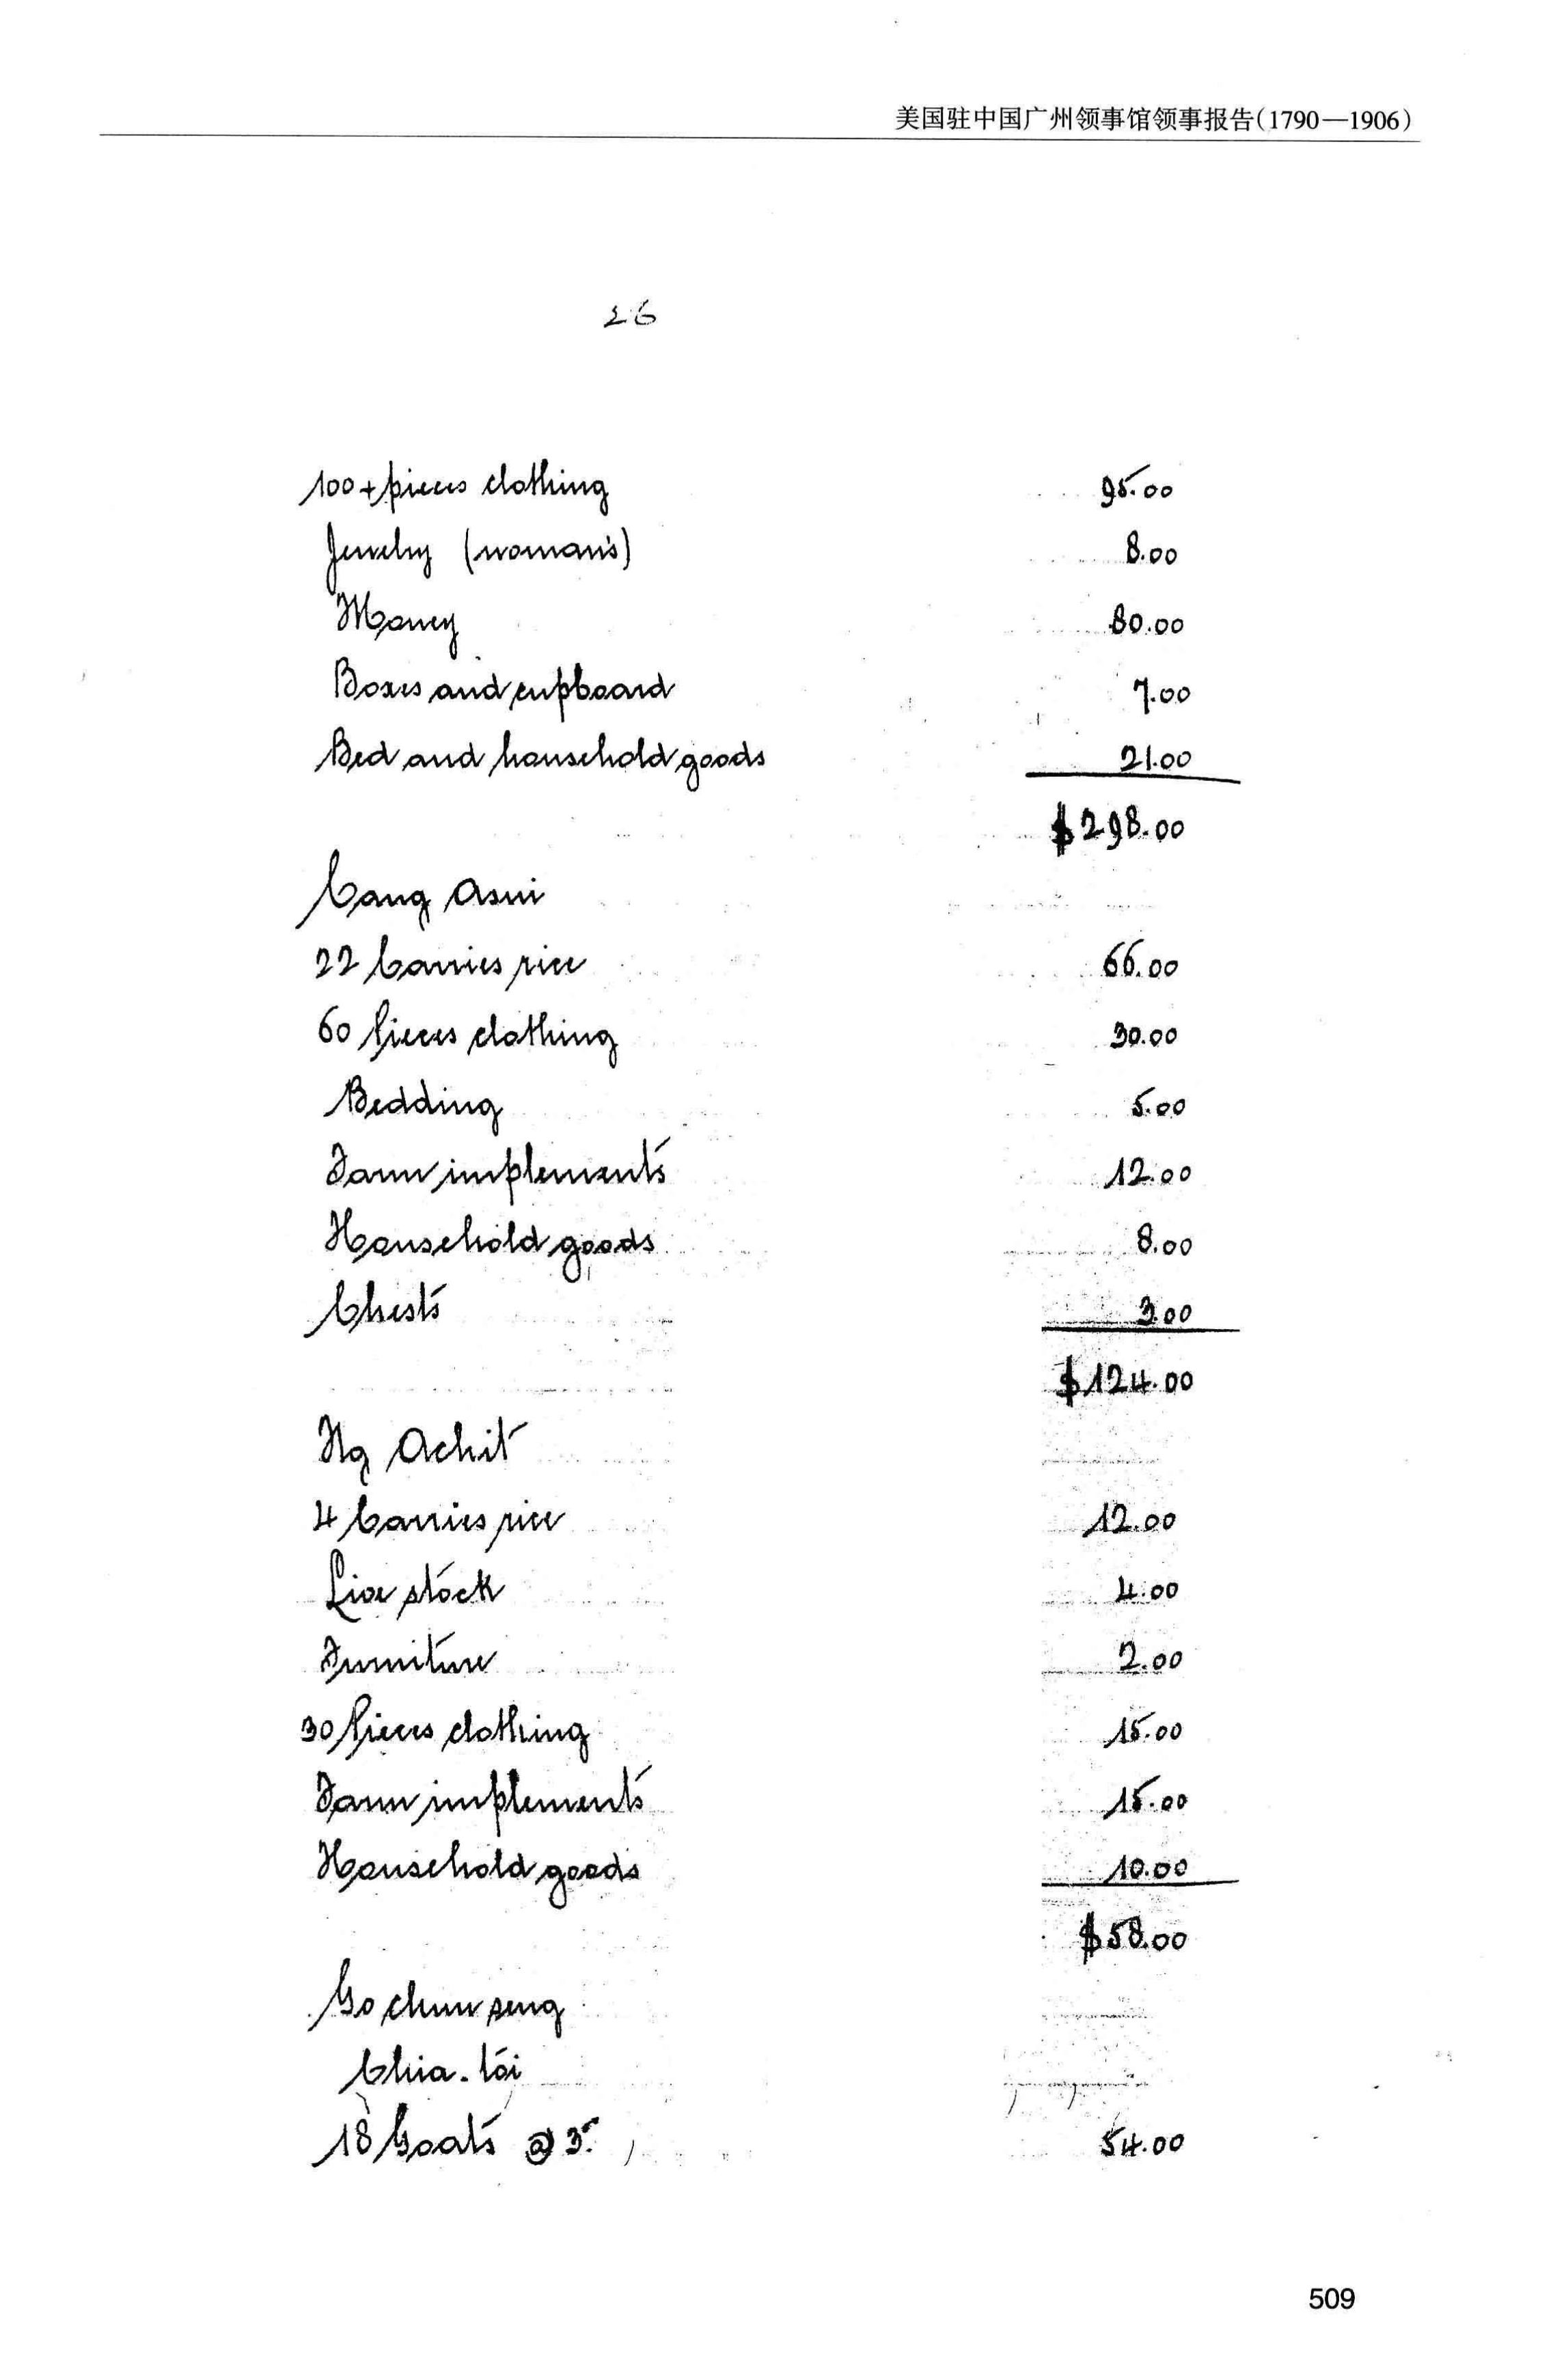 美国驻中国广州领事馆领事报告(1790—1906)
26
100+pieces clothing 95.00
Jewelry (woman's) 8.00
Money 80.00
Boxes and cupboard 7.00
Bed and household goods 21.00
$298.00
Cang Asui
22 Carries rice 66.00
60 Pieces clothing 30.00
Bedding 5.00
Farm implements 12.00
Household goods 8.00
Chests 3.00
$124.00
Ng Achit
4 Carries rice 12.00
Live stock 4.00
Furniture 2.00
30 Pieces clothing 15.00
Farm implements 15.00
Household goods 10.00
$58.00
Go chun seng
Chia-tói
18 Goats @ 3. 54.00
509